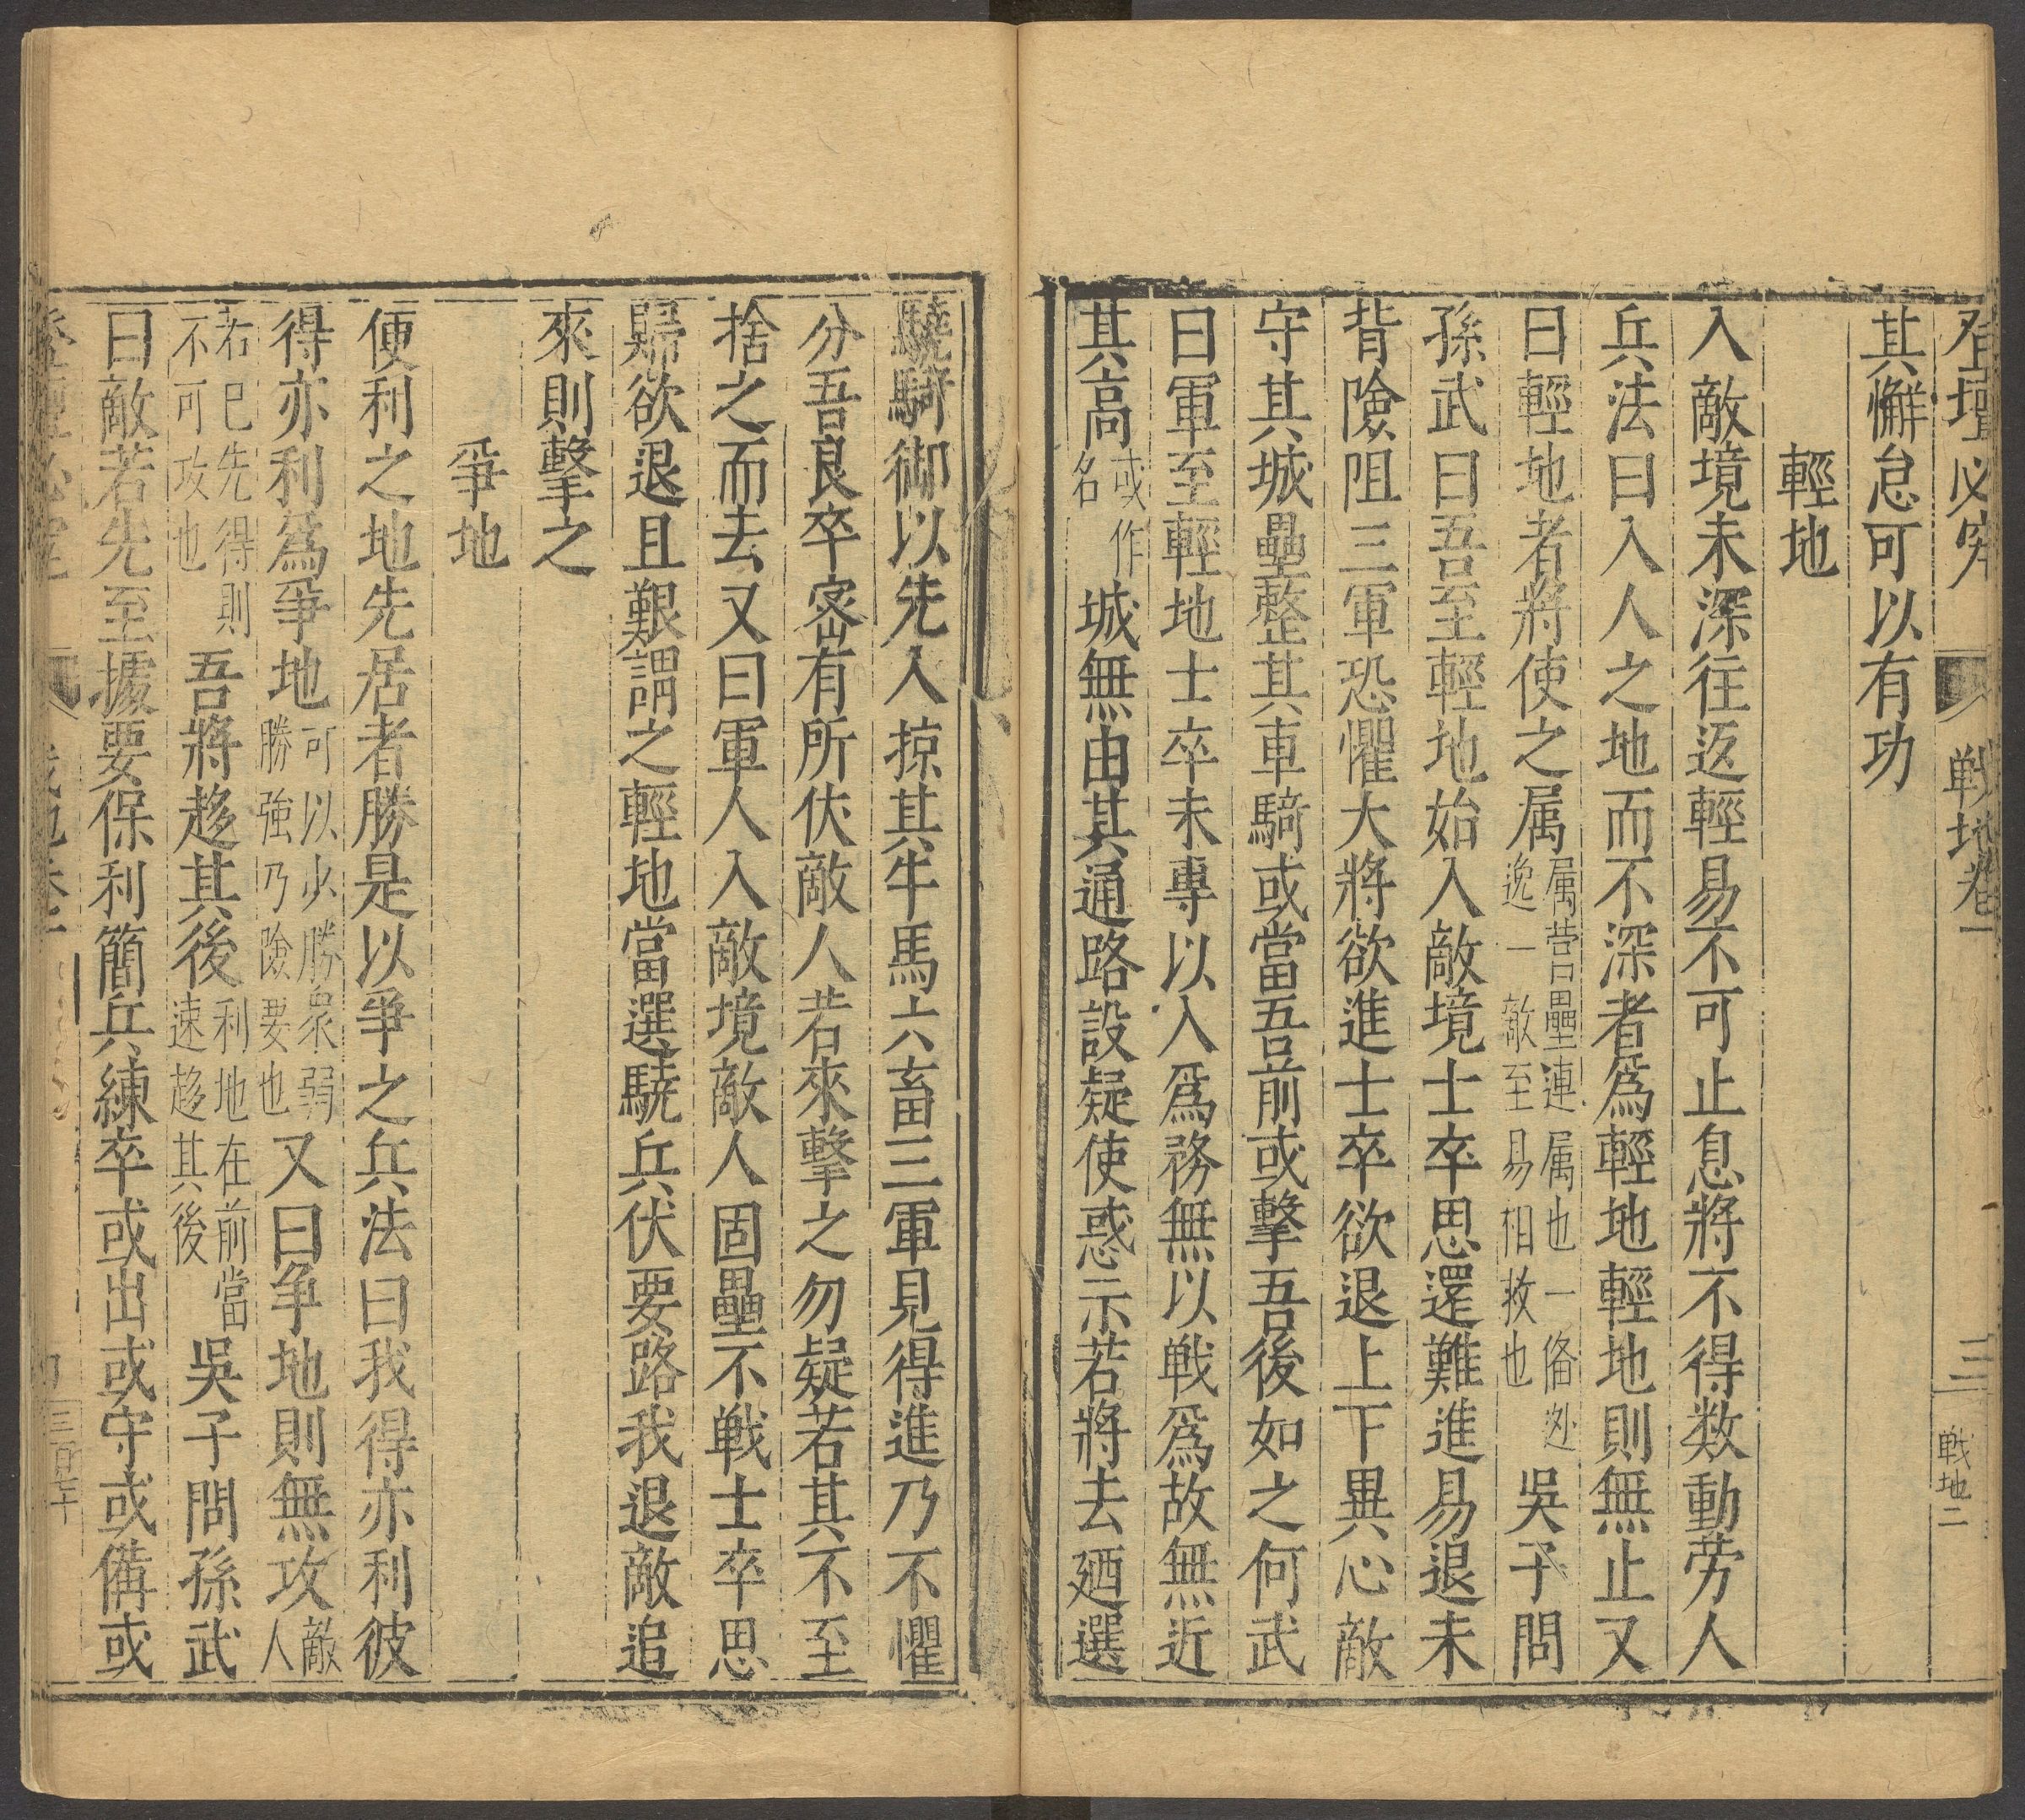 登壇必究 戰地卷一 三 戰地二
其懈怠可以有功
輕地
入敵境未深往返輕易不可止息將不得数動劳人
兵法曰入人之地而不深者爲輕地輕地則無止又
曰輕地者將使之属属营壘連属也一備迯逸一敵至易相救也吳子問
孫武曰吾至輕地始入敵境士卒思還難進易退未
背險阻三軍恐懼大將欲進士卒欲退上下異心敵
守其城壘整其車騎或當吾前或擊吾後如之何武
曰軍至輕地士卒未專以入爲務無以戦爲故無近
其高或作名城無由其通路設疑使惑示若將去廼選
驍騎御以先入掠其牛馬六畜三軍見得進乃不懼
分吾良卒宻有所伏敵人若來擊之勿疑若其不至
捨之而去又曰軍人入敵境敵人固壘不戦士卒思
歸欲退且艱謂之輕地當選驍兵伏要路我退敵追
來則擊之
爭地
便利之地先居者勝是以爭之兵法曰我得亦利彼
得亦利爲爭地可以少勝衆弱勝強乃險要也又曰争地則無攻敵人
若已先得則不可攻也吾將趍其後利地在前當速趍其後吳子問孫武
曰敵若先至據要保利簡兵練卒或出或守或備或